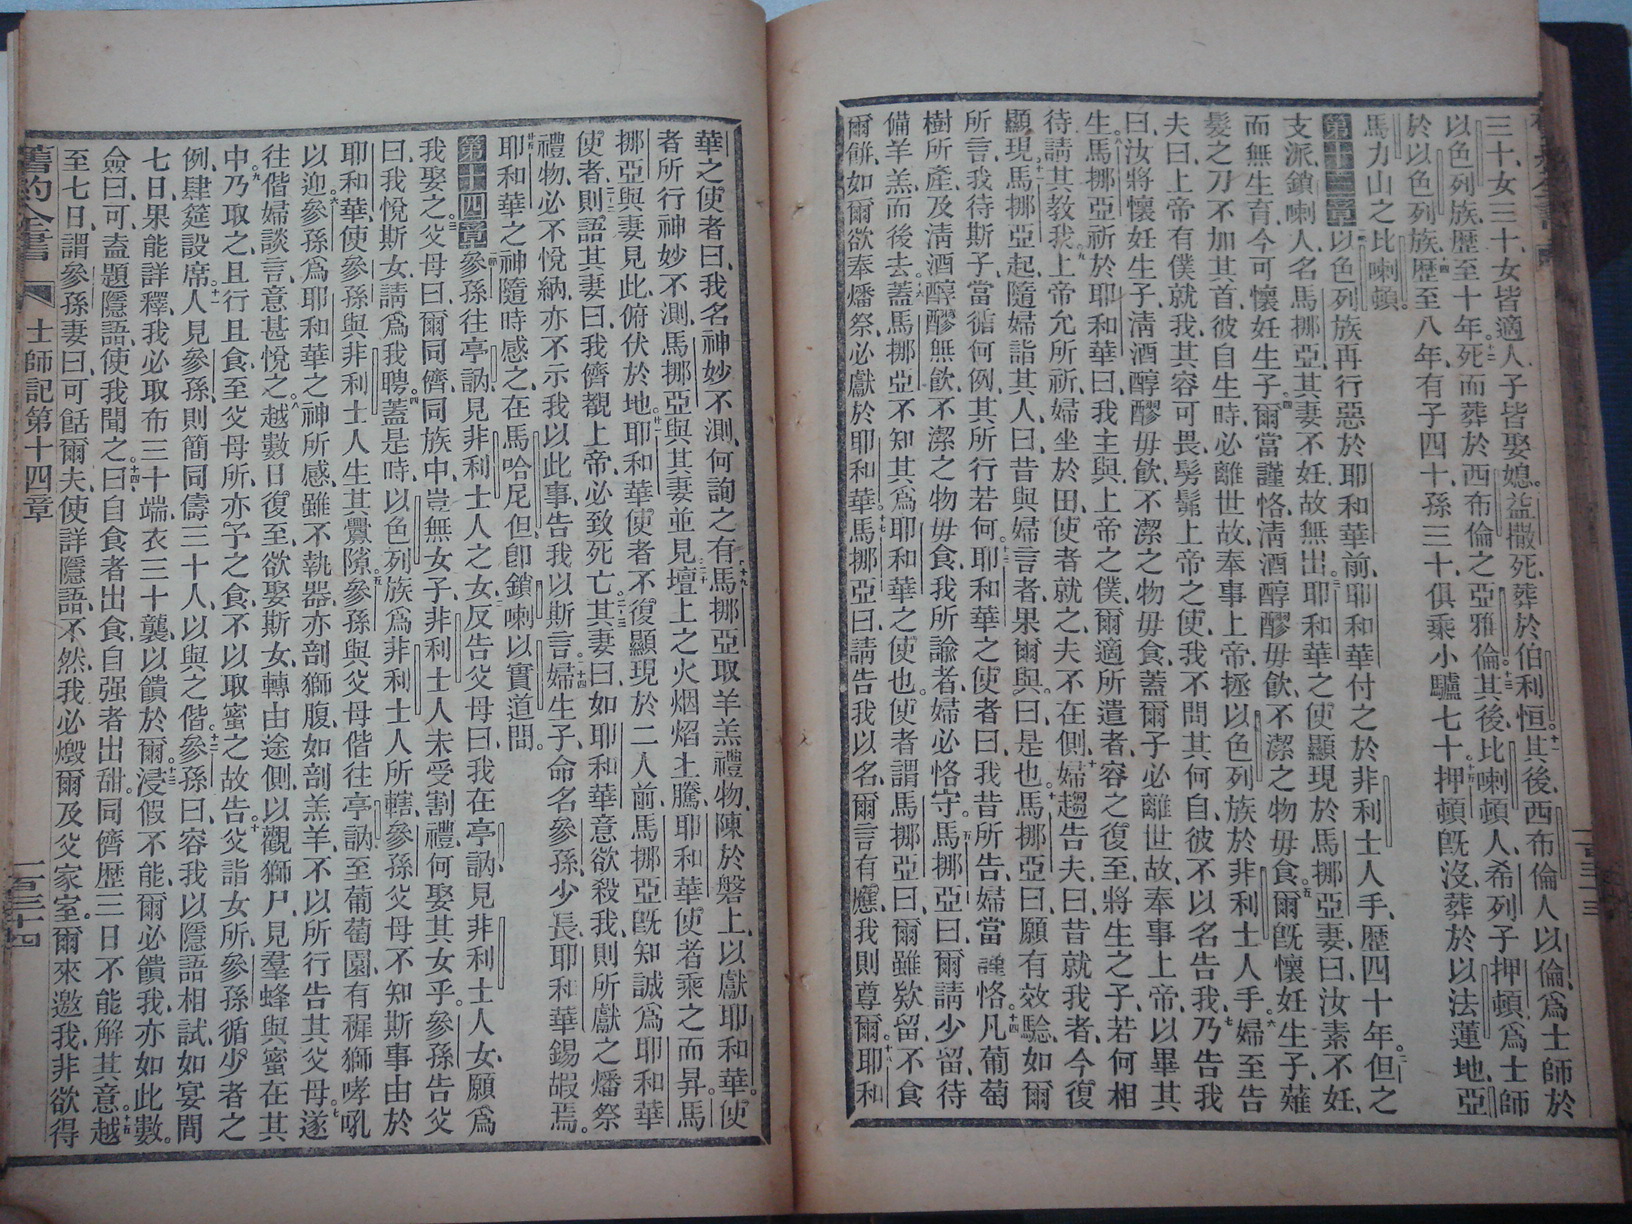 三十女三十女皆適人子皆娶媳益撒死葬於伯利恒其後西布倫人以倫爲士師於
以色列族歷至十年死而葬於西布倫之亞雅倫其後比喇頓人希列子押頓爲士師
於以色列族歷至八年有子四十孫三十俱乘小驢七十押頓旣沒葬於以法蓮地亞
馬力山之比喇頓
第十三章以色列族再行惡於耶和華前耶和華付之於非利士人手歷四十年但之
支派鎖喇人名馬挪亞其妻不妊故無出耶和華之使顯現於馬挪亞妻曰汝素不妊
而無生育今可懷妊生子爾當謹恪淸酒醇醪毋飮不潔之物毋食爾旣懷妊生子薙
髮之刀不加其首彼自生時必離世故奉事上帝拯以色列族於非利士人手婦至告
夫曰上帝有僕就我其容可畏髣髴上帝之使我不問其何自彼不以名告我乃告我
曰汝將懷妊生子淸酒醇醪毋飮不潔之物毋食蓋爾子必離世故奉事上帝以畢其
生馬挪亞祈於耶和華曰我主與上帝之僕爾適所遣者容之復至將生之子若何相
待請其敎我上帝允所祈婦坐於田使者就之夫不在側婦趨告夫曰昔就我者今復
顯現馬挪亞起隨婦詣其人曰昔與婦言者果爾與曰是也馬挪亞曰願有效騐如爾
所言我待斯子當循何例其所行若何耶和華之使者曰我昔所告婦當謹恪凡葡萄
樹所產及淸酒醇醪無飮不潔之物毋食我所諭者婦必恪守馬挪亞曰爾請少留待
備羊羔而後去蓋馬挪亞不知其爲耶和華之使也使者謂馬挪亞曰爾雖欵留不食
爾餅如爾欲奉燔祭必獻於耶和華馬挪亞曰請告我以名爾言有應我則尊爾耶和
華之使者曰我名神妙不測何詢之有馬挪亞取羊羔禮物陳於磐上以獻耶和華使
者所行神妙不測馬挪亞與其妻並見壇上之火烟焰上騰耶和華使者乘之而昇馬
挪亞與妻見此俯伏於地耶和華使者不復顯現於二人前馬挪亞旣知誠爲耶和華
使者則語其妻曰我儕覩上帝必致死亡其妻曰如耶和華意欲殺我則所獻之燔祭
禮物必不悅納亦不示我以此事告我以斯言婦生子命名參孫少長耶和華錫嘏焉
耶和華之神隨時感之在馬哈尼但卽鎖喇以實道間
第十四章參孫往亭訥見非利士人之女反告父母曰我在亭訥見非利士人女願爲
我娶之父母曰爾同儕同族中豈無女子非利士人未受割禮何娶其女乎參孫告父
曰我悅斯女請爲我聘蓋是時以色列族爲非利士人所轄參孫父母不知斯事由於
耶和華使參孫與非利士人生其釁隙參孫與父母偕往亭訥至葡萄園有穉獅哮吼
以迎參孫爲耶和華之神所感雖不執器亦剖獅腹如剖羔羊不以所行告其父母遂
往偕婦談言意甚悅之越數日復至欲娶斯女轉由途側以觀獅尸見羣蜂與蜜在其
中乃取之且行且食至父母所亦予之食不以取蜜之故告父詣女所參孫循少者之
例肆筵設席人見參孫則簡同儔三十人以與之偕參孫曰容我以隱語相試如宴間
七日果能詳釋我必取布三十端衣三十襲以饋於爾浸假不能爾必饋我亦如此數
僉曰可盍題隱語使我聞之曰自食者出食自强者出甜同儕歷三日不能解其意越
至七日謂參孫妻曰可餂爾夫使詳隱語不然我必燬爾及父家室爾來邀我非欲得
舊約全書 士師記第十四章 一百三十四